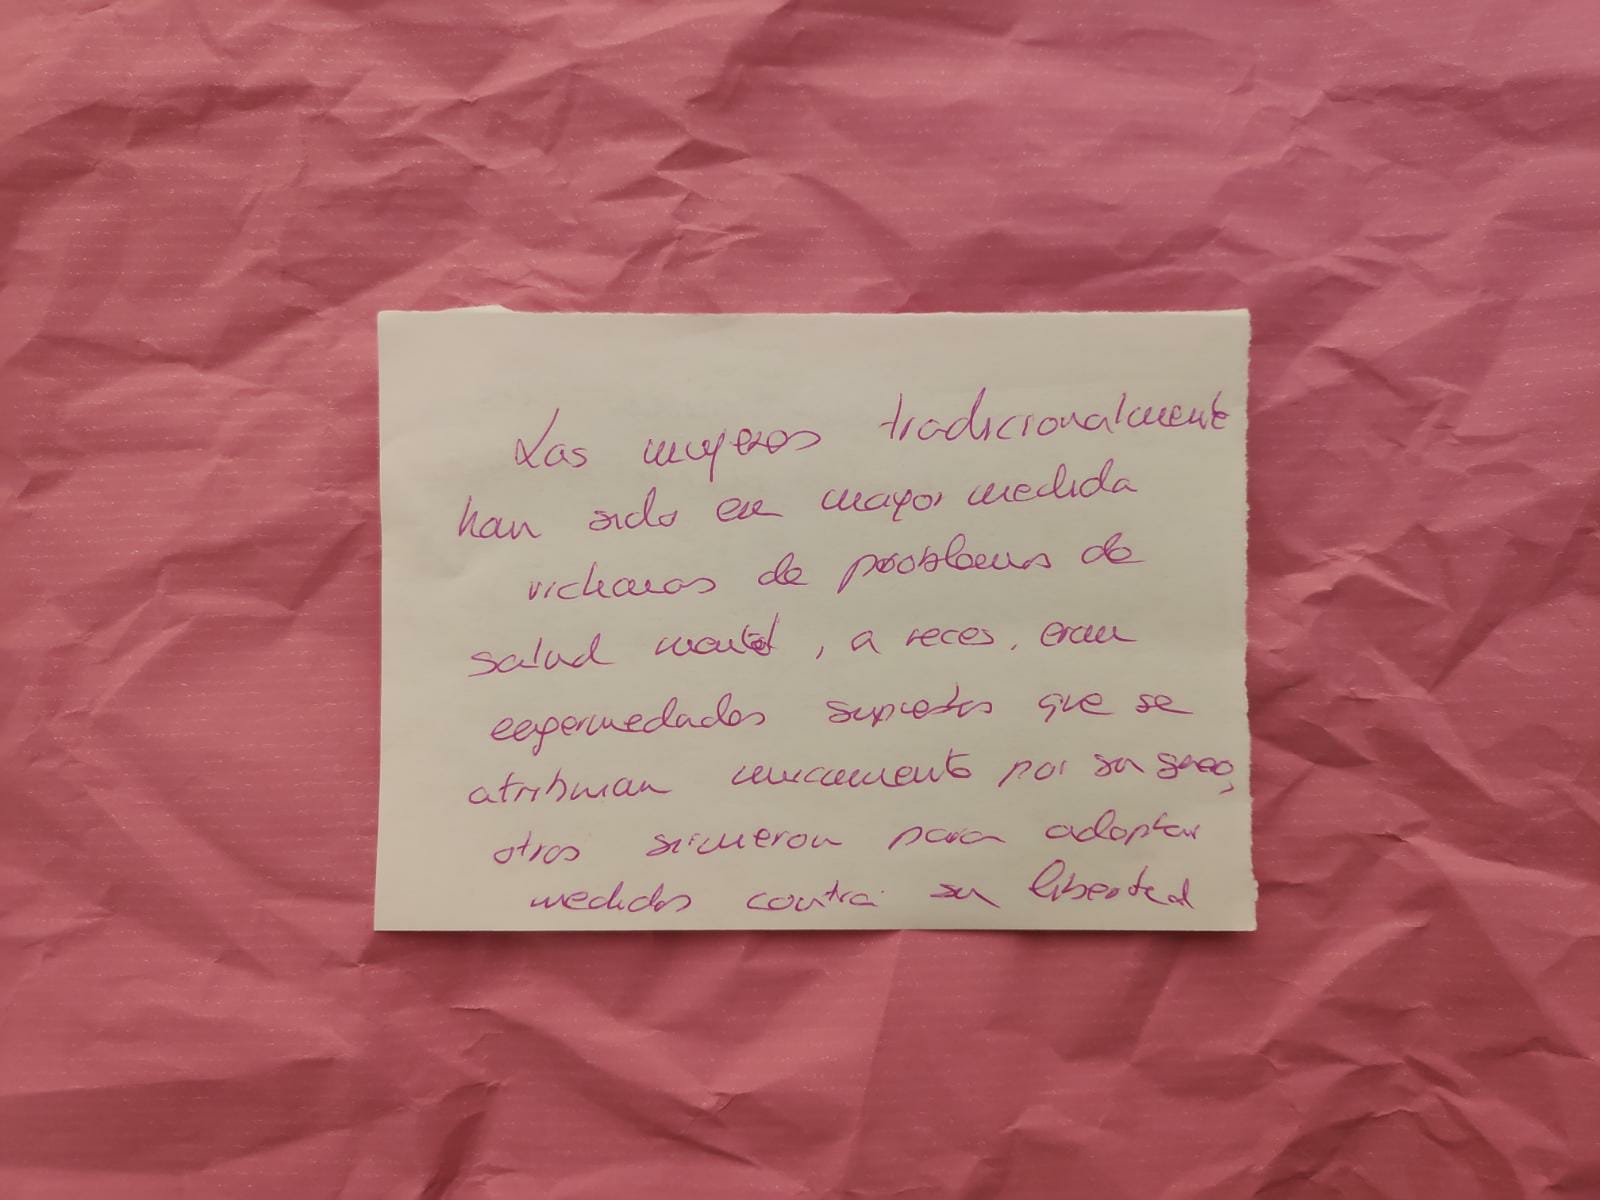 Las mujeres tradicionalmente
han sido en mayor medida
victimas de problemas de
salud mental, a veces, eran
enfermedades supuestas que se
atribuian unicamente por su sexo,
otras sirvieron para adoptar
medidas contra su libertad